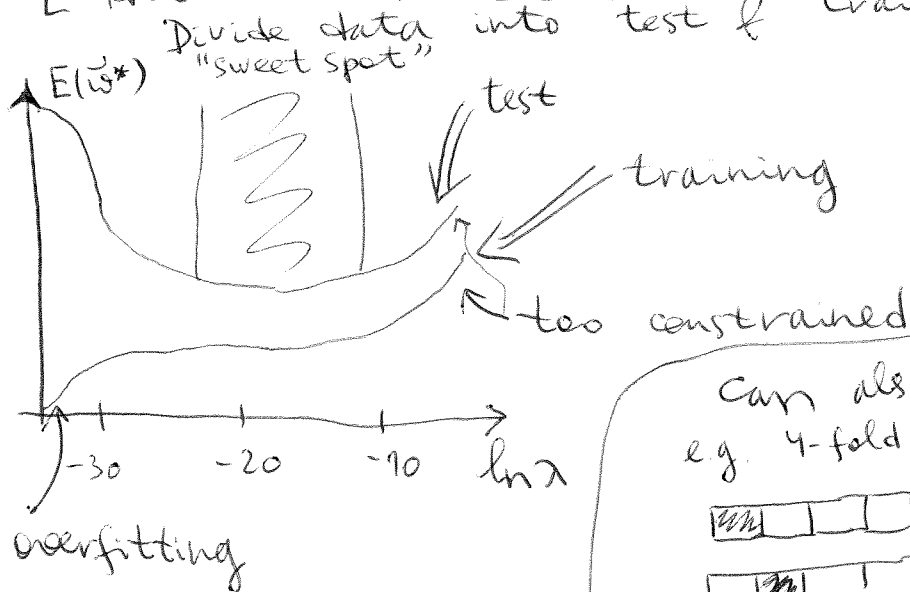 Divide data into test & trai
"sweet spot"
E(w⃗*)
test
training
too constrained
-30
-20
-10
ln λ
overfitting
Can als
e.g. 4-fold